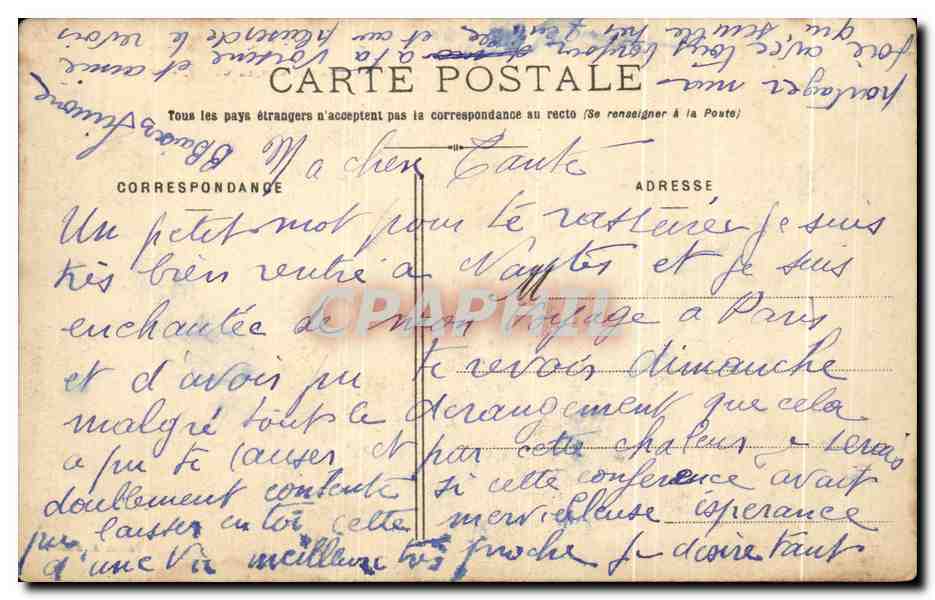 CARTE POSTALE
Tous les pays étrangers n'acceptent pas la correspondance au recto (Se renseigner à la Poste)
CORRESPONDANCE
ADRESSE
Ma cher Tante
Un petit mot pour te je suis
très bien rentré a Nantes et je suis
M
enchantée de mon voyage a Paris
et d'avoir pu te revoir dimanche
malgré tout le derangement que cela
a pu te causer et par cette chaleur serais
doublement contente si cette conference avait
pu laisser en toi cette merveilleuse esperance
d'une Vie meilleure très proche je désire tant
partager ma
joie avec toi toujours
qui semble très gentille
a ta voisine et amie
et au plaisir de te revoir
Simone
CPAPHIL